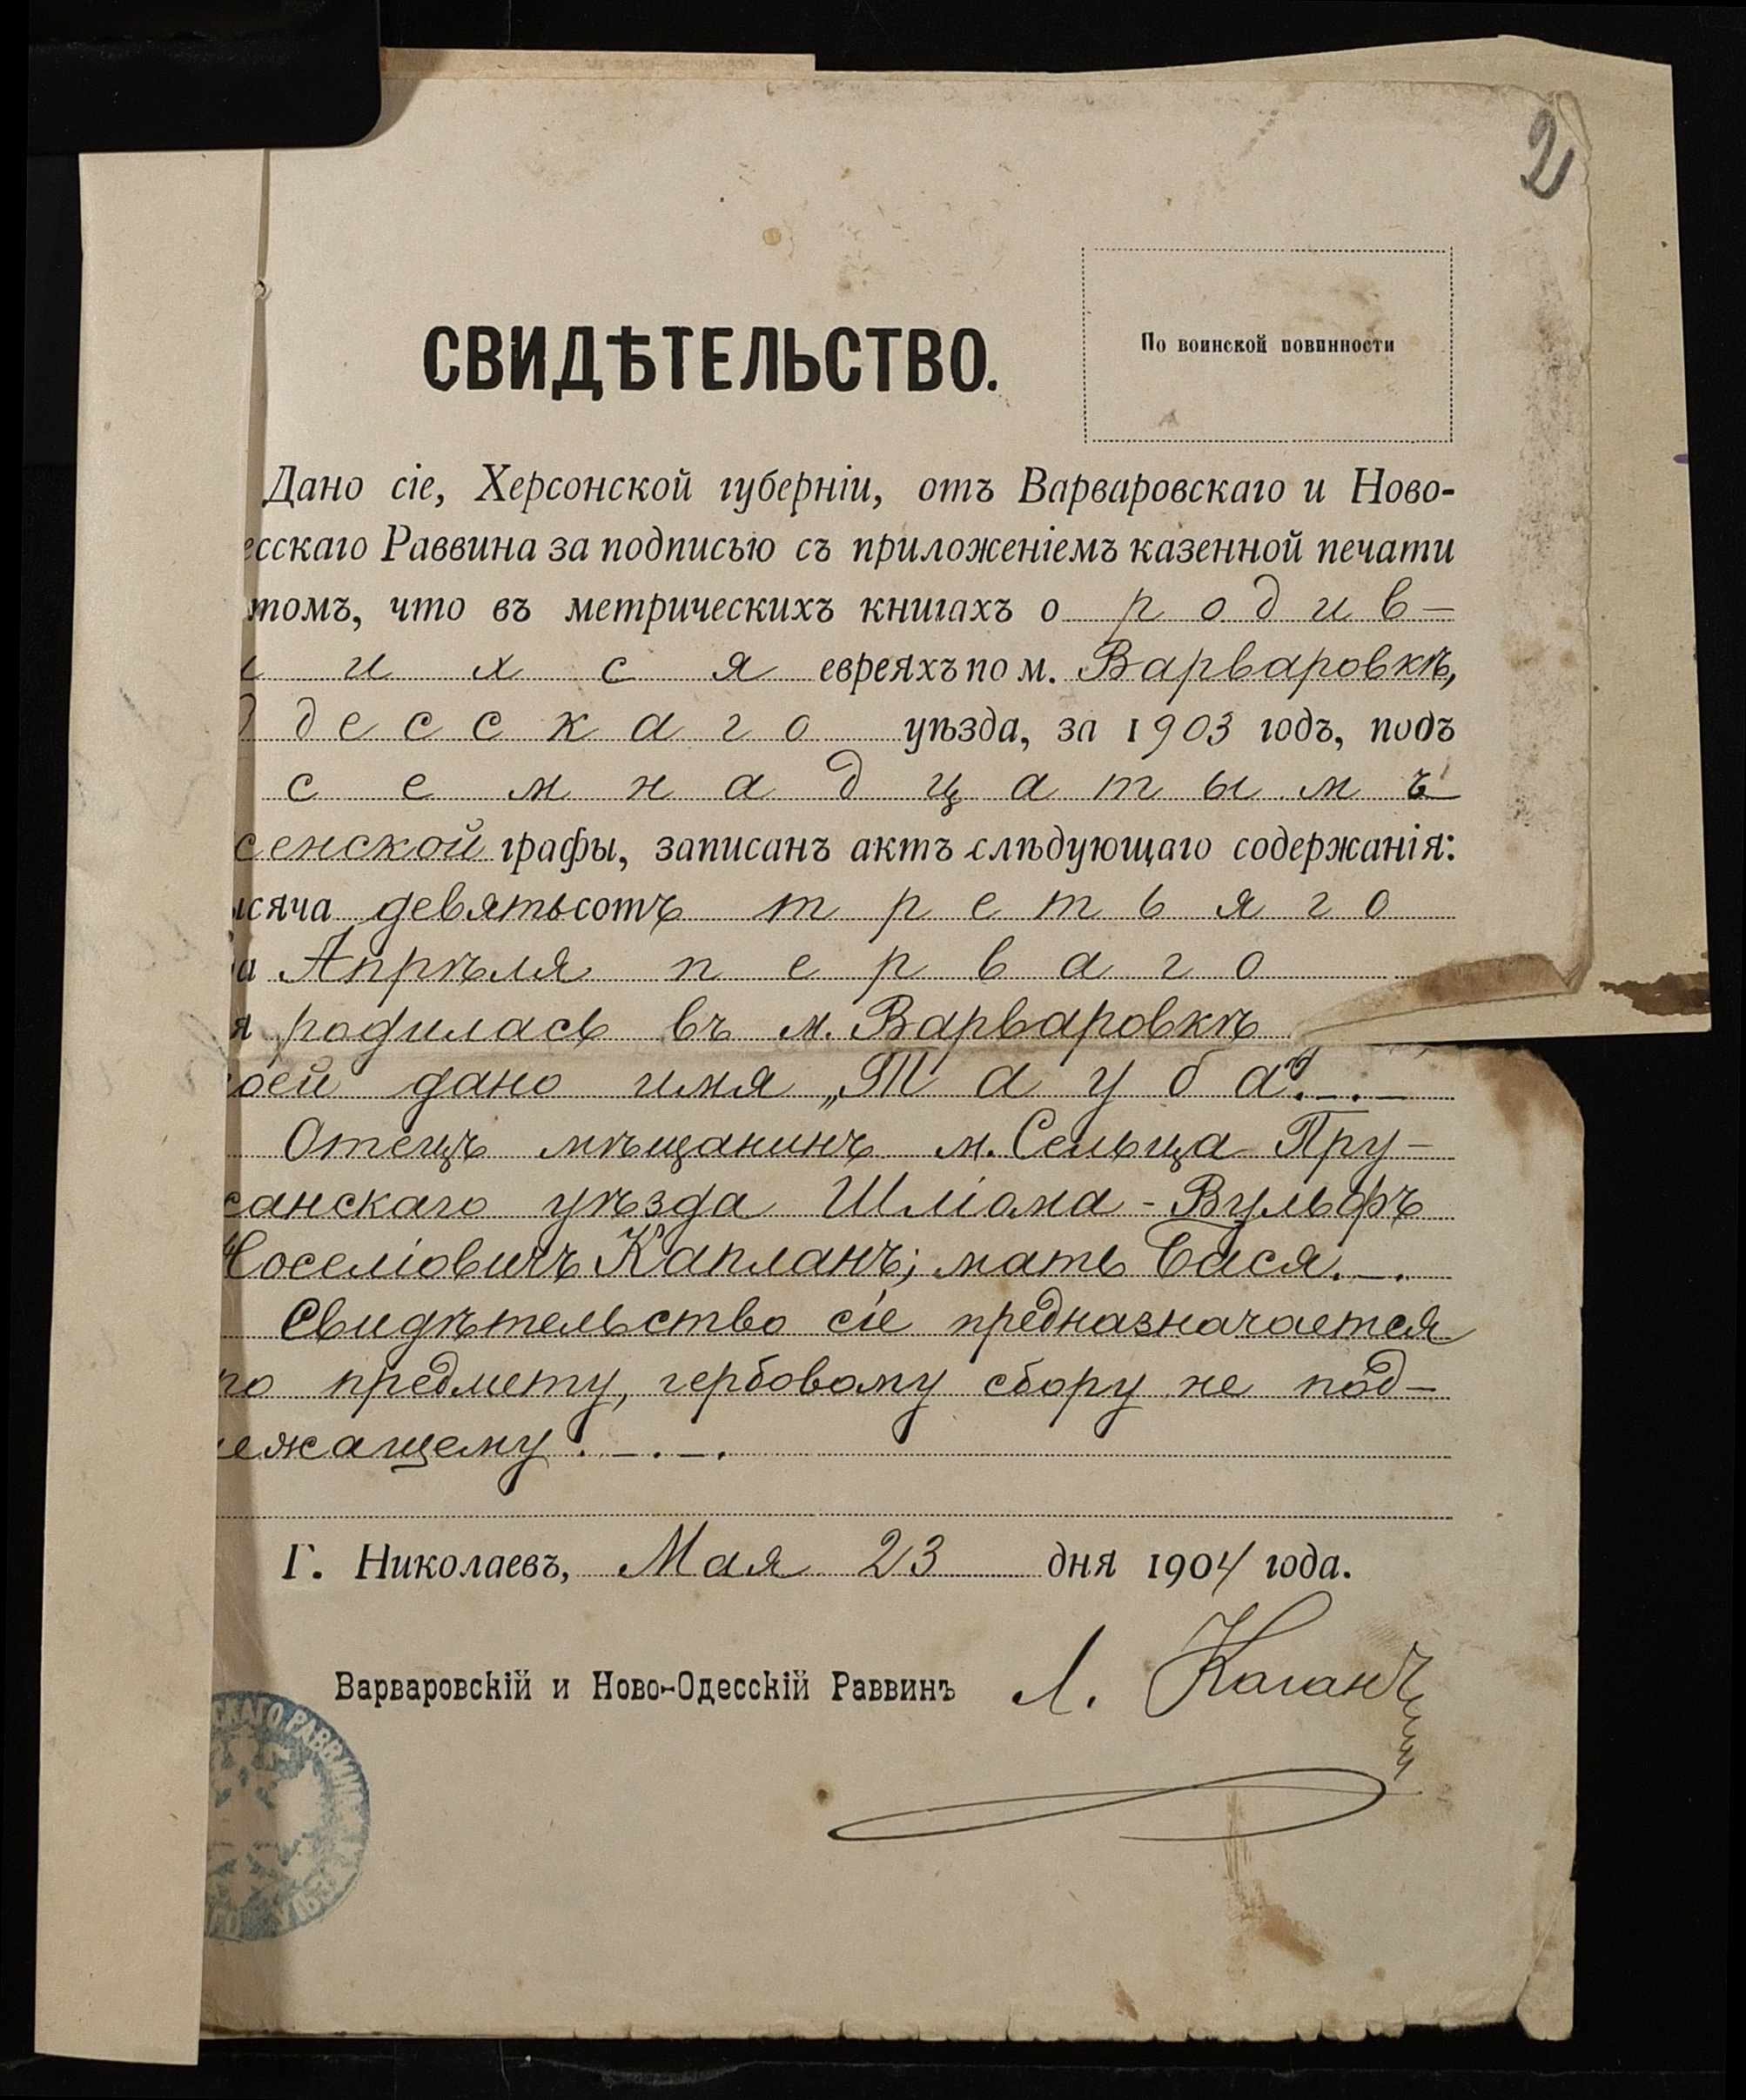 2
СВИДѢТЕЛЬСТВО.
По воинской повинности
Дано сіе, Херсонской губерніи, отъ Варваровскаго и Ново-
есскаго Раввина за подписью съ приложеніемъ казенной печати
томъ, что въ метрическихъ книгахъ о родив-
ихся евреяхъ по м. Варваровкѣ,
десскаго уѣзда, за 1903 годъ, подъ
семнадцатымъ
сенской графы, записанъ актъ слѣдующаго содержанія:
ысяча девятьсотъ третьяго
а Апрѣля перваго
я родилась въ м. Варваровкѣ
оей дано имя „Тауба".—.—
Отецъ мѣщанинъ м. Сельца Пру-
санскаго уѣзда Шліома-Вульфъ
Іоселіовичъ Капланъ; мать Бася.—.
Свидѣтельство сіе предназначается
по предмету, гербовому сбору не под-
лежащему.—.—.
Г. Николаевъ, Мая 23 дня 1904 года.
Варваровскій и Ново-Одесскій Раввинъ Л. Каганъ
СКАГО РАВВИНА
УѢЗ